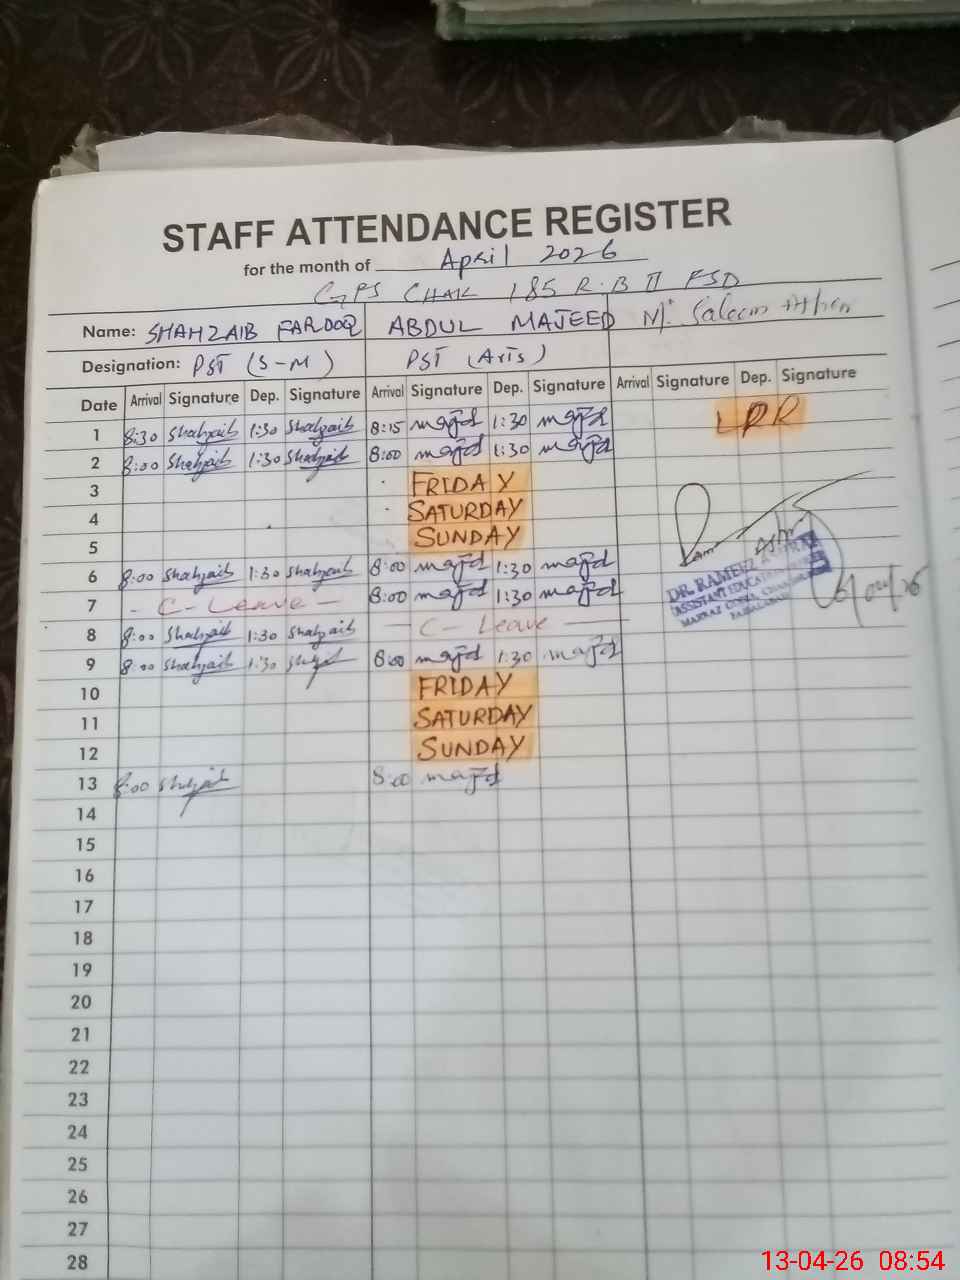 STAFF ATTENDANCE REGISTER
for the month of April 2026
GPS CHAK 185 R.B II FSD
Name: SHAHZAIB FAROOQ ABDUL MAJEED M. Saleem
Designation: PST (S-M) PST (Arts)
Date Arrival Signature Dep. Signature Arrival Signature Dep. Signature Arrival Signature Dep. Signature
1 8:30 Shahzaib 1:30 Shahzaib 8:15 majd 1:30 majd LPR
2 8:00 Shahzaib 1:30 Shahzaib 8:00 majd 1:30 majd
3 FRIDAY
4 SATURDAY
5 SUNDAY
6 8:00 Shahzaib 1:30 Shahzaib 8:00 majd 1:30 majd
7 - C- Leave - 8:00 majd 1:30 majd
8 8:00 Shahzaib 1:30 Shahzaib - C- Leave -
9 8:00 Shahzaib 1:30 8:00 majd 1:30 majd
DR. RAMEEZ
ASSISTANT EDUCATION
MARKAZ
FAISALABAD
10 FRIDAY
11 SATURDAY
12 SUNDAY
13 8:00 8:00 majd
14
15
16
17
18
19
20
21
22
23
24
25
26
27
28
13-04-26 08:54